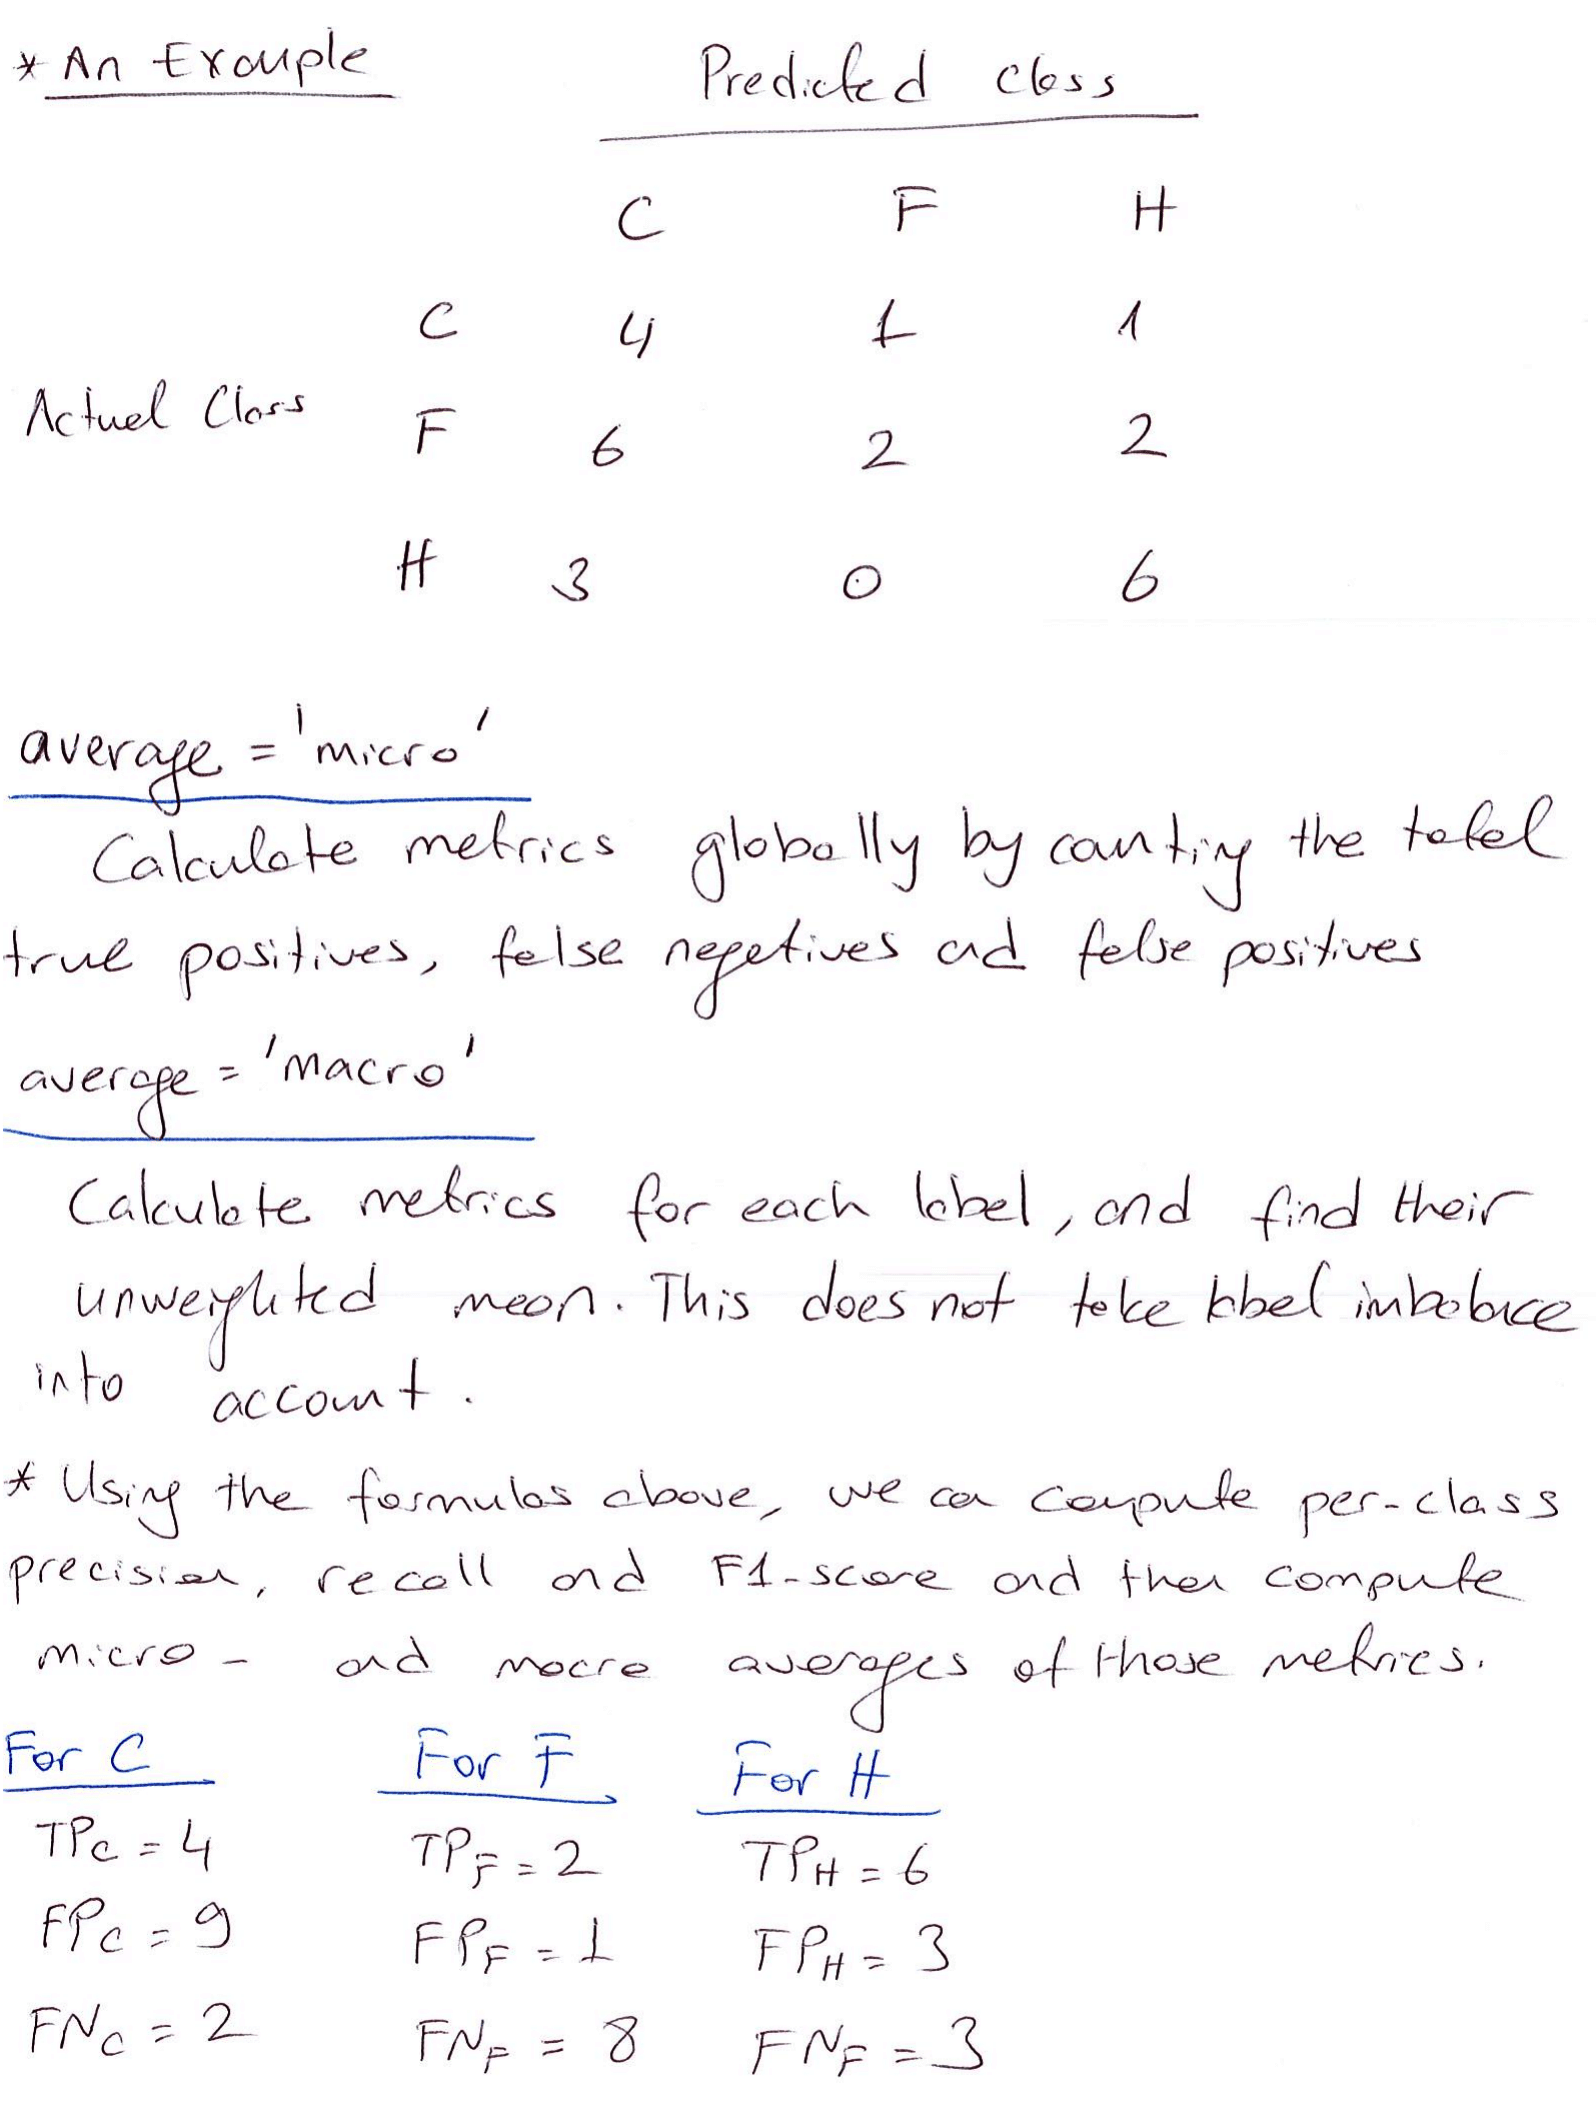 * An Example
Predicted class
C F H
C 4 1 1
Actual Class
F 6 2 2
H 3 0 6
average = 'micro'
Calculate metrics globally by counting the total
true positives, false negatives and false positives
average = 'macro'
Calculate metrics for each label, and find their
unweighted mean. This does not take label imbalance
into account.
* Using the formulas above, we can compute per-class
precision, recall and F1-score and then compute
micro- and macro averages of those metrics.
For C For F For H
TPC = 4 TPF = 2 TPH = 6
FPC = 9 FPF = 1 FPH = 3
FNC = 2 FNF = 8 FNF = 3